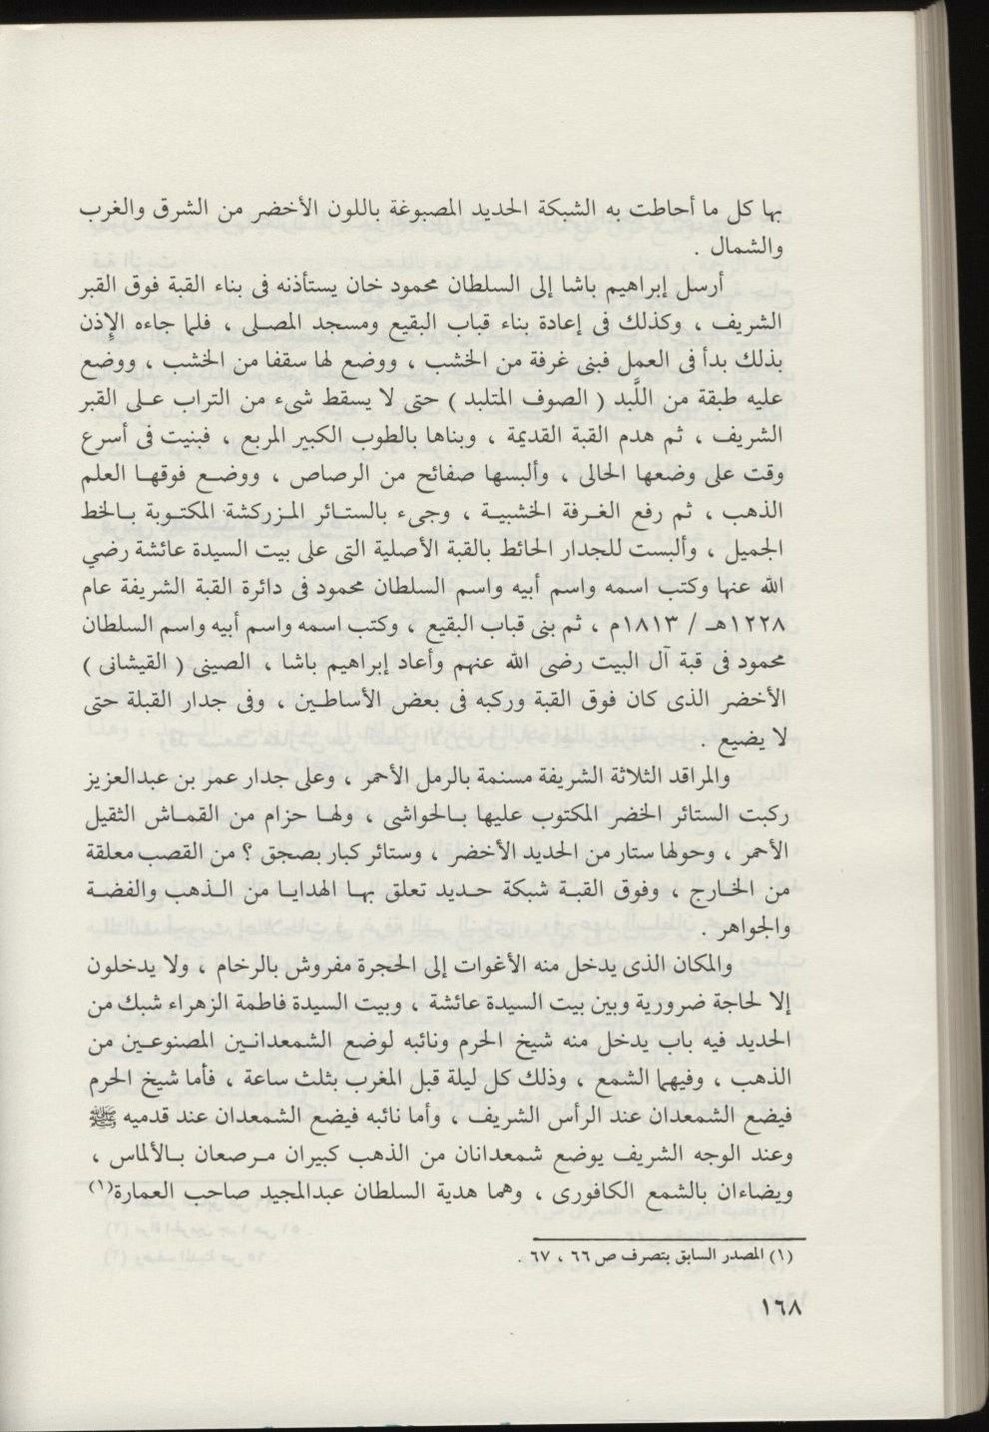 بها كل ما أحاطت به الشبكة الحديد المصبوغة باللون الأخضر من الشرق والغرب
والشمال .
أرسل إبراهيم باشا إلى السلطان محمود خان يستأذنه فى بناء القبة فوق القبر
الشريف ، وكذلك فى إعادة بناء قباب البقيع ومسجد المصلى ، فلما جاءه الإذن
بذلك بدأ فى العمل فبنى غرفة من الخشب ، ووضع لها سقفا من الخشب ، ووضع
عليه طبقة من اللَّبد ( الصوف المتلبد ) حتى لا يسقط شىء من التراب على القبر
الشريف ، ثم هدم القبة القديمة ، وبناها بالطوب الكبير المربع ، فبنيت فى أسرع
وقت على وضعها الحالى ، وألبسها صفائح من الرصاص ، ووضع فوقها العلم
الذهب ، ثم رفع الغرفة الخشبية ، وجىء بالستائر المزركشة المكتوبة بالخط
الجميل ، وألبست للجدار الحائط بالقبة الأصلية التى على بيت السيدة عائشة رضي
الله عنها وكتب اسمه واسم أبيه واسم السلطان محمود فى دائرة القبة الشريفة عام
١٢٢٨هـ / ١٨١٣م ، ثم بنى قباب البقيع ، وكتب اسمه واسم أبيه واسم السلطان
محمود فى قبة آل البيت رضى الله عنهم وأعاد إبراهيم باشا ، الصينى ( القيشانى )
الأخضر الذى كان فوق القبة وركبه فى بعض الأساطين ، وفى جدار القبلة حتى
لا يضيع .
والمراقد الثلاثة الشريفة مسنمة بالرمل الأحمر ، وعلى جدار عمر بن عبدالعزيز
ركبت الستائر الخضر المكتوب عليها بالحواشى ، ولها حزام من القماش الثقيل
الأحمر ، وحولها ستار من الحديد الأخضر ، وستائر كبار بصجق ؟ من القصب معلقة
من الخارج ، وفوق القبة شبكة حديد تعلق بها الهدايا من الذهب والفضة
والجواهر .
والمكان الذى يدخل منه الأغوات إلى الحجرة مفروش بالرخام ، ولا يدخلون
إلا لحاجة ضرورية وبين بيت السيدة عائشة ، وبيت السيدة فاطمة الزهراء شبك من
الحديد فيه باب يدخل منه شيخ الحرم ونائبه لوضع الشمعدانين المصنوعين من
الذهب ، وفيهما الشمع ، وذلك كل ليلة قبل المغرب بثلث ساعة ، فأما شيخ الحرم
فيضع الشمعدان عند الرأس الشريف ، وأما نائبه فيضع الشمعدان عند قدميه ﷺ
وعند الوجه الشريف يوضع شمعدانان من الذهب كبيران مرصعان بالألماس ،
ويضاءان بالشمع الكافورى ، وهما هدية السلطان عبدالمجيد صاحب العمارة(١)
(١) المصدر السابق بتصرف ص ٦٦ ، ٦٧ .
١٦٨